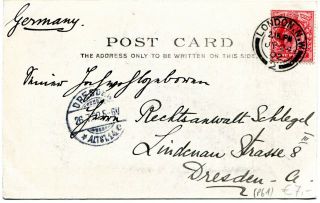 Germany.
POST CARD
THE ADDRESS ONLY TO BE WRITTEN ON THIS SIDE
LONDON. N.W.
Seiner Hochwohlgeboren
DRESDEN
ALTST.
Herrn Rechtsanwalt Schlegel
Lindenau Strasse 8
Dresden - A.
€ 7,-